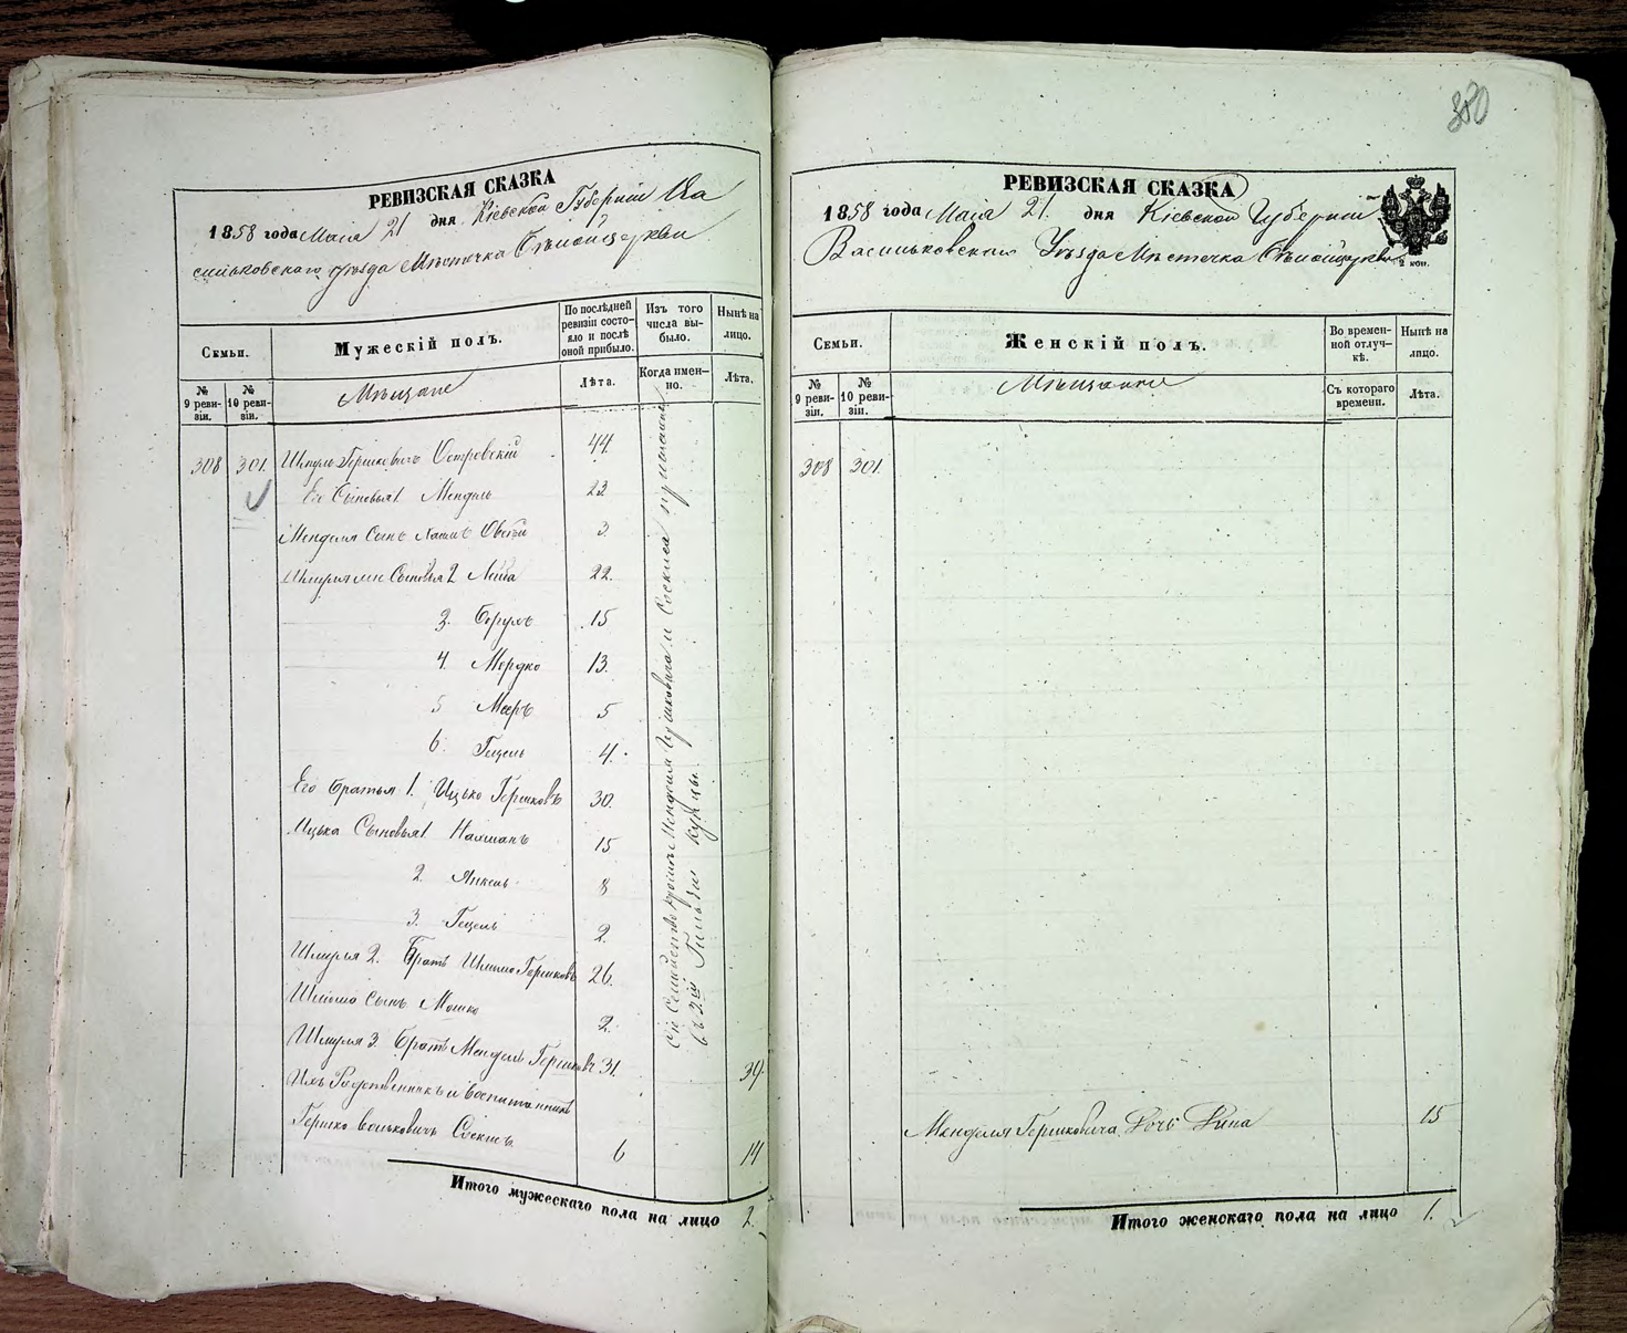 350
РЕВИЗСКАЯ СКАЗКА
1858 года Маія 21 дня Кіевской Губерніи Ва
сильковскаго уѣзда Мѣстечка Бѣлойцеркви
Семьи.
Мужескій полъ.
По послѣдней ревизіи состояло и послѣ оной прибыло.
Изъ того числа выбыло.
Нынѣ на лицо.
№ 9 ревизіи.
№ 10 ревизіи.
Мѣщане
Лѣта.
Когда именно.
Лѣта.
308 301 Шмуль Гершковичъ Островскій 44
Его Сыновья 1 Мендель 23
Менделя Сынъ 3
Шмуля Сыновья 2 Лейба 22.
3. Борухъ 15
4. Мордко 13.
5 Мееръ 5
6. Гецель 4.
Его братья 1. Ицько Гершковъ 30.
Ицька Сыновья 1 Нахманъ 15
2. Янкель 8
3. Гецель 2.
Шмуля 2. Братъ Шлиомо Гершковъ 26.
Шлиомо Сынъ Мошко 2.
Шмуля 3. Братъ Мендель Гершковъ 31. 34
Ихъ Родственникъ и воспитанникъ
Гершко Вольковичъ 6 14
Сіе Семейство кромѣ Менделя Гершковича и причислено
въ 3й Гильдіи купцы.
Итого мужескаго пола на лицо 2.
РЕВИЗСКАЯ СКАЗКА
1858 года Маія 21. дня Кіевской Губерніи
Васильковскаго Уѣзда Мѣстечка Бѣлойцеркви
2 коп.
Семьи.
Женскій полъ.
Во временной отлучкѣ.
Нынѣ на лицо.
№ 9 ревизіи.
№ 10 ревизіи.
Мѣщанки
Съ котораго времени.
Лѣта.
308 301.
Менделя Гершковича Дочь 15
Итого женскаго пола на лицо 1.